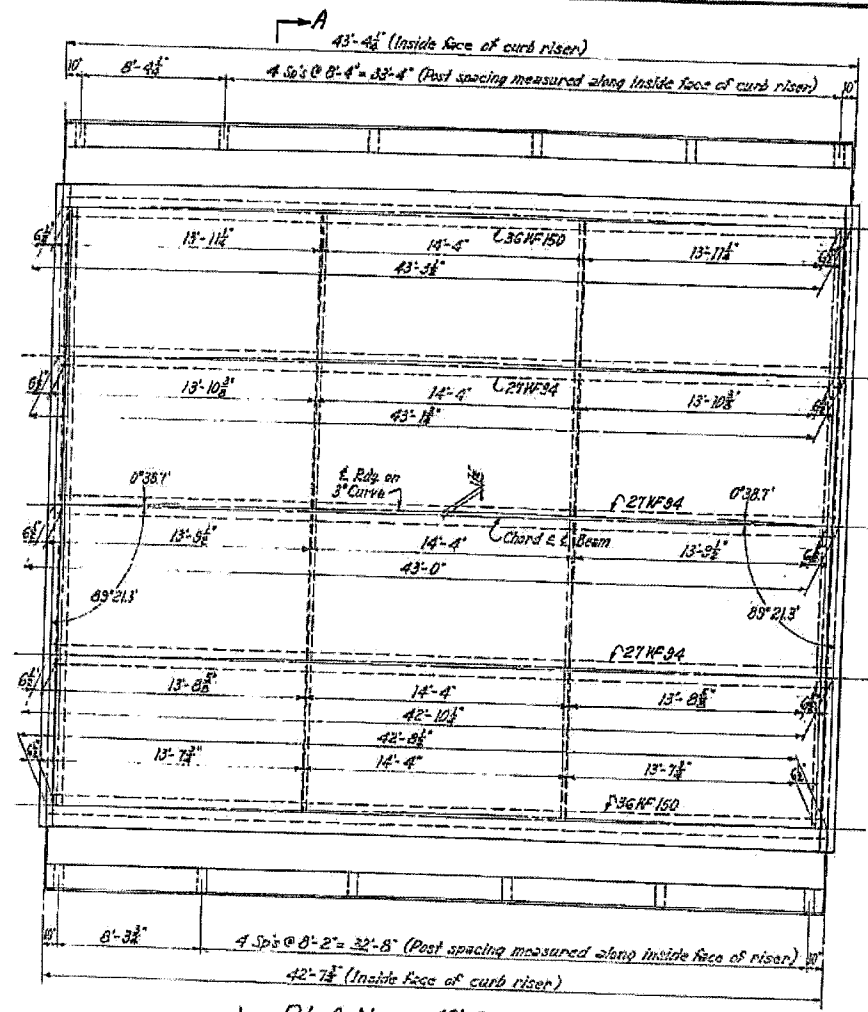 A
43'-4¼" (Inside face of curb riser)
10" 8'-4¼" 4 Sp's @ 8'-4" = 33'-4" (Post spacing measured along inside face of curb riser) 10"
6½" 13'-11¼" 14'-4" 36 WF 150 13'-11¼" 6½"
43'-3½"
6½" 13'-10⅜" 14'-4" 27 WF 94 13'-10⅜" 6½"
43'-1¾"
0°38.7' ℄ Rdg. on 3° Curve 27 WF 94 0°38.7'
6½" 13'-9½" 14'-4" Chord & ℄ Beam 13'-9½" 6½"
43'-0"
89°21.3' 89°21.3'
27 WF 94
6½" 13'-8⅝" 14'-4" 13'-8⅝" 6½"
42'-10¼"
42'-8½"
6½" 13'-7¾" 14'-4" 13'-7¾" 6½"
36 WF 150
10" 8'-3¾" 4 Sp's @ 8'-2" = 32'-8" (Post spacing measured along inside face of riser) 10"
42'-7¾" (Inside face of curb riser)